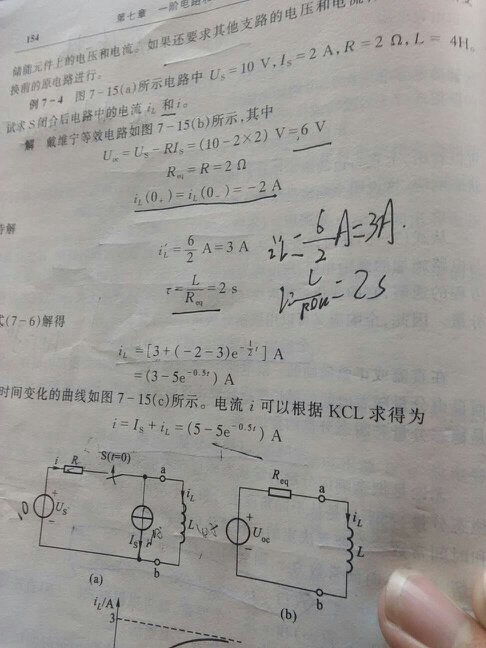 154
第七章 一阶电路和
储能元件上的电压和电流。如果还要求其他支路的电压和电流,
换前的原电路进行。
例 7-4 图 7-15(a)所示电路中 U_S = 10 V, I_S = 2 A, R = 2 Ω, L = 4H。
试求 S 闭合后电路中的电流 i_L 和 i。
解 戴维宁等效电路如图 7-15(b)所示,其中
U_oc = U_S - RI_S = (10-2×2) V = 6 V
R_eq = R = 2 Ω
i_L(0₊) = i_L(0₋) = -2 A
特解
i'_L = 6/2 A = 3 A
i'L = 6/2 A = 3A.
τ = L/R_eq = 2 s
= 2s
式(7-6)解得
i_L = [3+(-2-3)e^{-1/2 t}] A
= (3-5e^{-0.5t}) A
时间变化的曲线如图 7-15(c)所示。电流 i 可以根据 KCL 求得为
i = I_S + i_L = (5-5e^{-0.5t}) A
i R S(t=0) a
+ U_S - 10
I_S
i_L L
b
(a)
R_eq a
+ U_oc -
i_L L
b
(b)
i_L/A
3